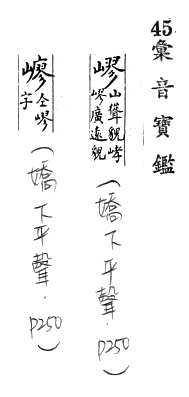 45彙音寶鑑
嵺 山聳貌嵺
嵺廣遠貌
(嬌下平聲.P250)
嶛 仝嵺
字
(嬌下平聲.P250)